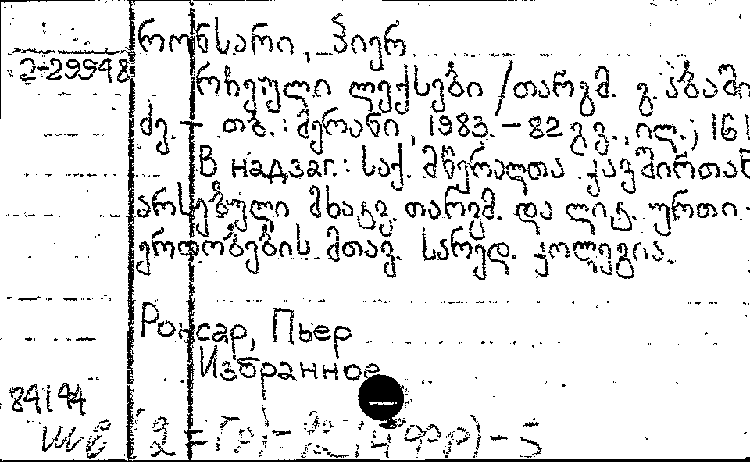 რონსარი, პიერ
2-29948
რჩეული ლექსები /თარგმ. გ. აბაში
ძე. – თბ.: მერანი, 1983. – 82 გვ., ილ.; 161
В надзаг.: საქ. მწერალთა კავშირთან
არსებული მხატვ. თარგმ. და ლიტ. ურთი-
ერთობების მთავ. სარედ. კოლეგია.
Ронсар, Пьер
Избранное
84144